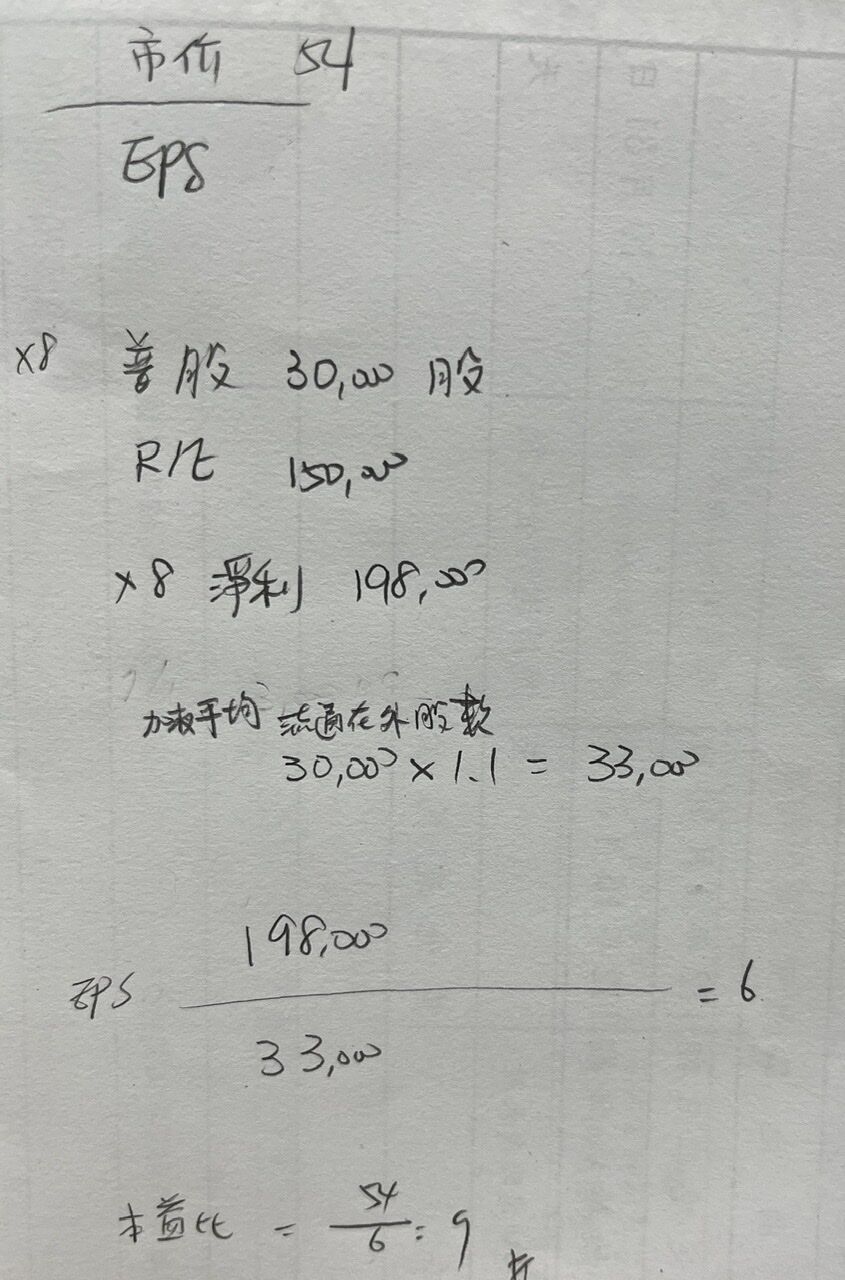 市价 54
EPS
x8 普股 30,000 股
R/E 150,000
x8 淨利 198,000
加權平均 流通在外股數
30,000 x 1.1 = 33,000
198,000
EPS = 6
33,000
本益比 = 54/6 = 9 #